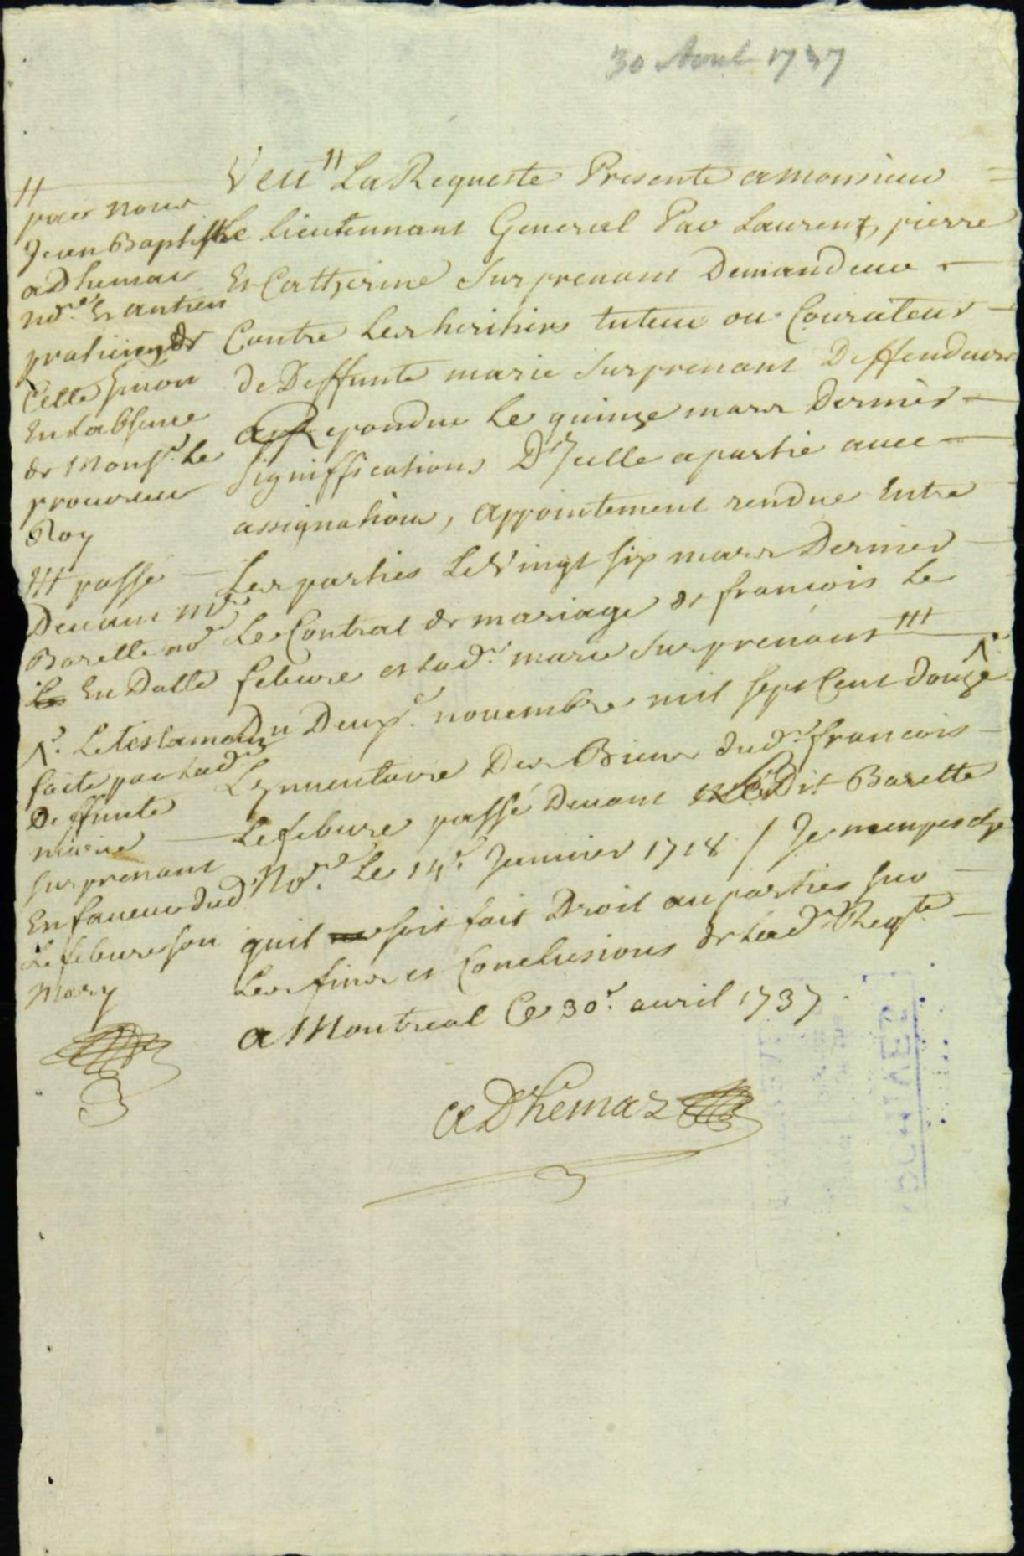 30 Avril 1737
Veu # La Requeste Presente a monsieur
Le Lieutennant General Par Laurent, pierre
Et Catherine Surprenant Demandeur
Contre Les heritiers tuteur ou Courateur
de Deffunte marie Surprenant Deffendeurs
Repondue Le quinze mars Dernier
Signiffications D'Icelle a partie avec
assignation, appointement rendue Entre
Les parties Le Vingt six mars Dernier
Le Contrat de mariage de francois Le
febure et lade. marie Surprenant ###
Du Deuxe. novembre mil sept Cent douze
L'ynventaire Des Biens dud. francois
Lefebure passé Devant Ledit Barette
Nore. Le 14e. Janvier 1718 / Je
quil soit fait Droit au parties sur
Les fins et Conclusions de Lade Reqte
a Montreal Ce 30e. avril 1737
Adhemar
#
par nous
Jean Baptiste
adhemar
nore. Et antien
praticien de
Cette
En Labsence
de Monsr. Le
procureur
Roy
### passé
Devant Me
Barette nore
En Datte
Le testament
faite par Lade
Deffunte
marie
Surprenant
En faveur dud
Lefebure son
Mary